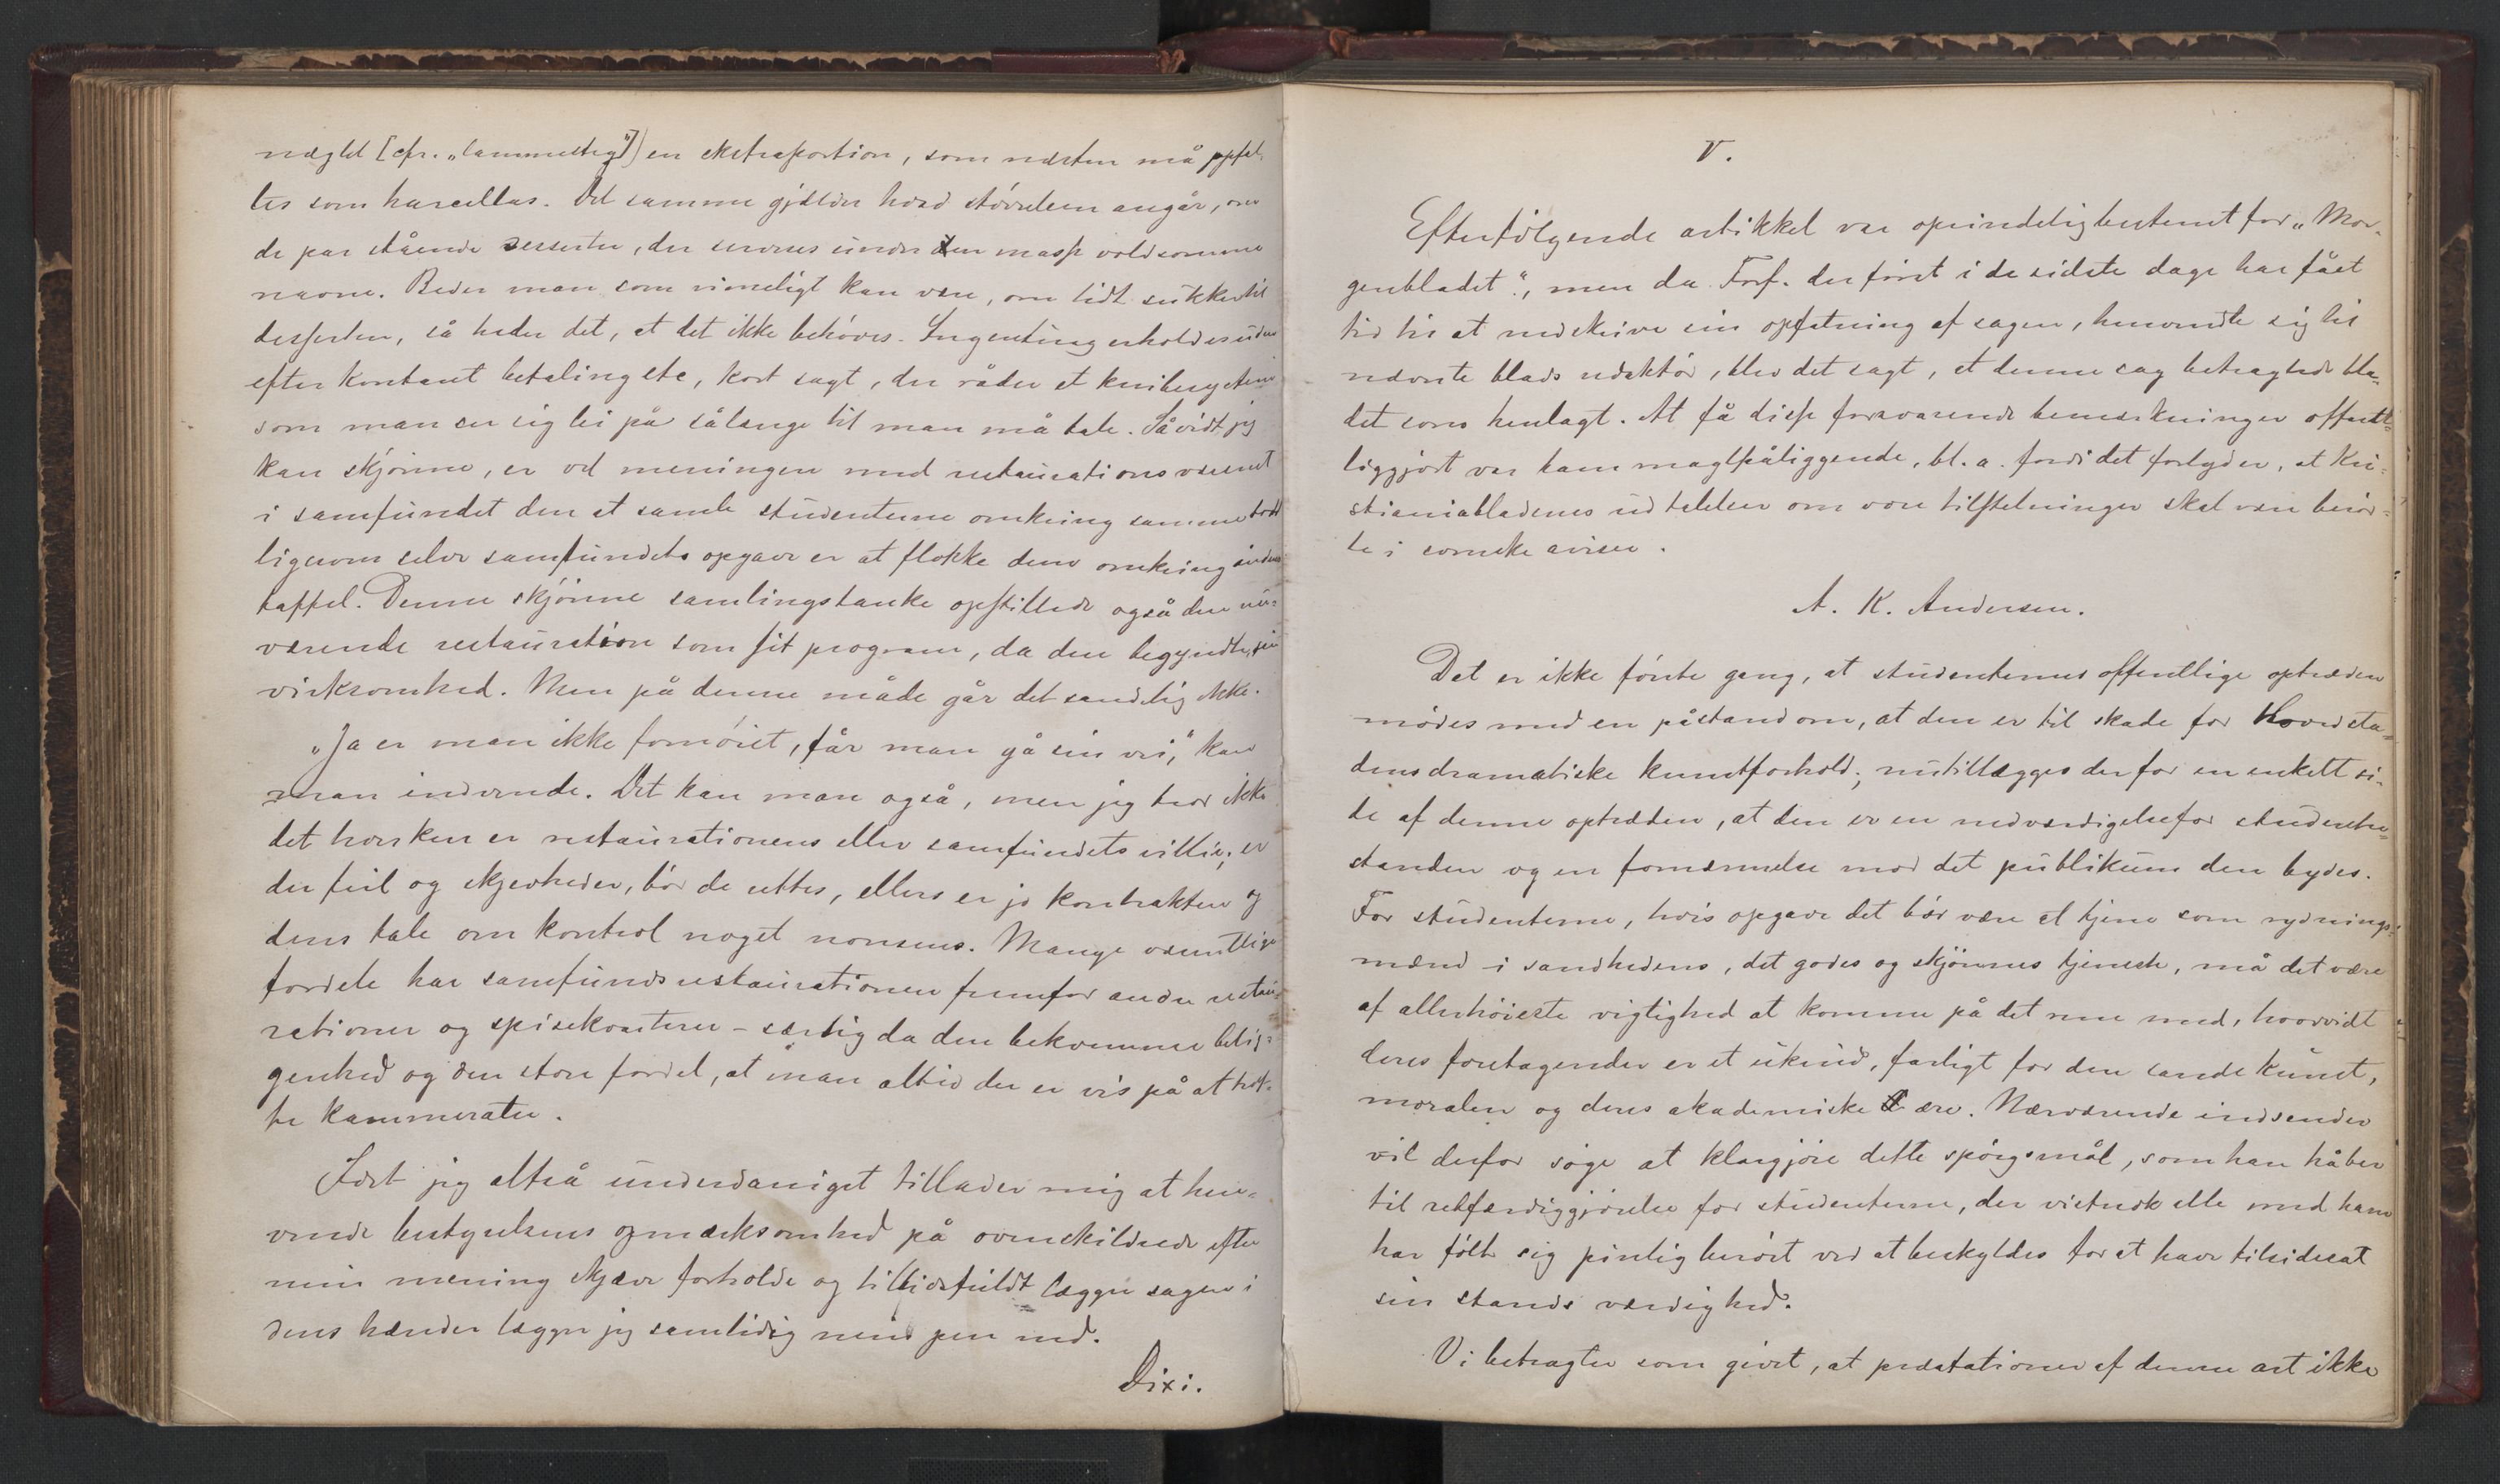 nægtet [cfr. „lammesteg"] en ekstraportion, som næsten må opfat-
tes som harcellas. Det samme gjælder hvad størrelsen angår, om
de par stående desserter, der serveres under den masse voldsomme
navne. Beder man som rimeligt kan være, om lidt sukker til
desserten, så heder det, at det ikke behøves. Ingenting erholdes uden
efter kontant betaling etc, kort sagt, der råder et knibesystem
som man ser sig lei på sålænge til man må tale. Så vidt jeg
kan skjønne, er vel meningen med restaurationsvæsenet
i samfundet den at samle studenterne omkring samme bord
ligesom selve samfundets opgave er at flokke dem omkring åndens
taffel. Denne skjønne samlingstanke opstillede også den nu-
værende restauration som sit program, da den begyndte sin
virksomhed. Men på denne måde går det sandelig ikke.
„Ja er man ikke fornøiet, får man gå sin vei," kan
man indvende. Det kan man også, men jeg tror ikke
det hverken er restaurationens eller samfundets villie; er
der feil og skjevheder, bør de rettes, ellers er jo kontrakten og
dens tale om kontrol noget nonsens. Mange væsentlige
fordele har samfundsrestaurationen fremfor andre restau-
rationer og spisekvarterer – særlig da den bekvemme belig-
genhed og den store fordel, at man altid der er vis på at tref-
fe kammerater.
Idet jeg altså underdanigst tillader mig at hen-
vende bestyrelsens opmærksomhed på ovenskildrede efter
min mening skjæve forholde og tillidsfuldt lægger sagen i
dens hænder lægger jeg samtidig min pen ned.
Dixi.
V.
Efterfølgende artikkel var oprindelig bestemt for „Mor-
genbladet", men da Forf. der først i de sidste dage har fået
tid til at nedskrive sin opfatning af sagen, henvendte sig til
nævnte blads redaktør, blev det sagt, at denne sag betragtede bla-
det som henlagt. At få disse forsvarende bemærkninger offent-
liggjort var ham magtpåliggende, bl. a. fordi det forlyder, at Kri-
stianiabladenes udtalelser om vore tilstelninger skal være berør-
te i svenske aviser.
A. K. Andersen.
Det er ikke første gang, at studenternes offentlige optræden
mødes med en påstand om, at den er til skade for Hovedsta-
dens dramatiske kunstforhold; nu tillægges derfor en enkelt si-
de af denne optræden, at den er en nedværdigelse for studenter-
standen og en fornærmelse mod det publikum den bydes.
For studenterne, hvis opgave det bør være at tjene som rydnings-
mænd i sandhedens, det godes og skjønnes tjeneste, må det være
af allerhøieste vigtighed at komme på det rene med, hvorvidt
deres foretagender er et ukrud, farligt for den sande kunst,
moralen og deres akademiske ære. Nærværende indsender
vil derfor søge at klargjøre dette spørgsmål, som han håber
til retfærdiggjørelse for studenterne, der vistnok alle med ham
har følt sig pinlig berørt ved at beskyldes for at have tilsidesat
sin stands værdighed.
Vi betragter som givet, at præstationer af denne art ikke